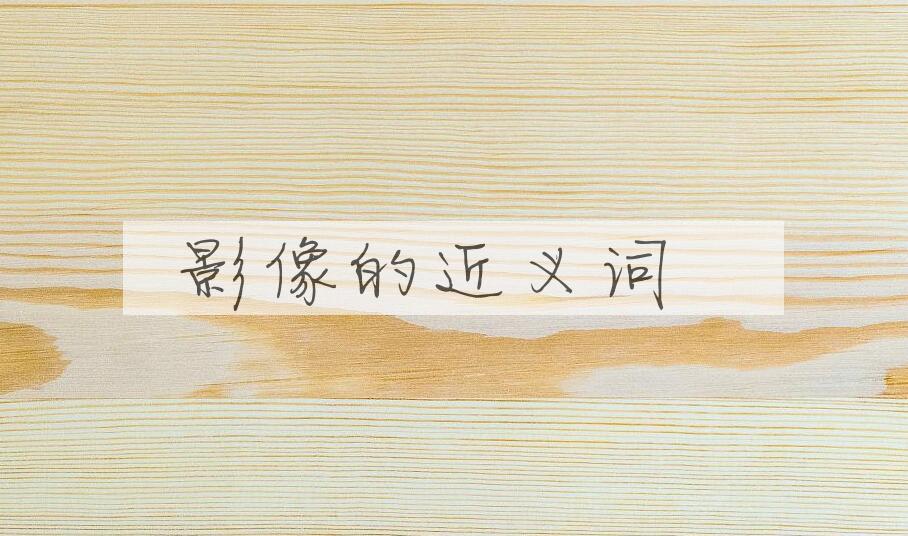 影像的近义词